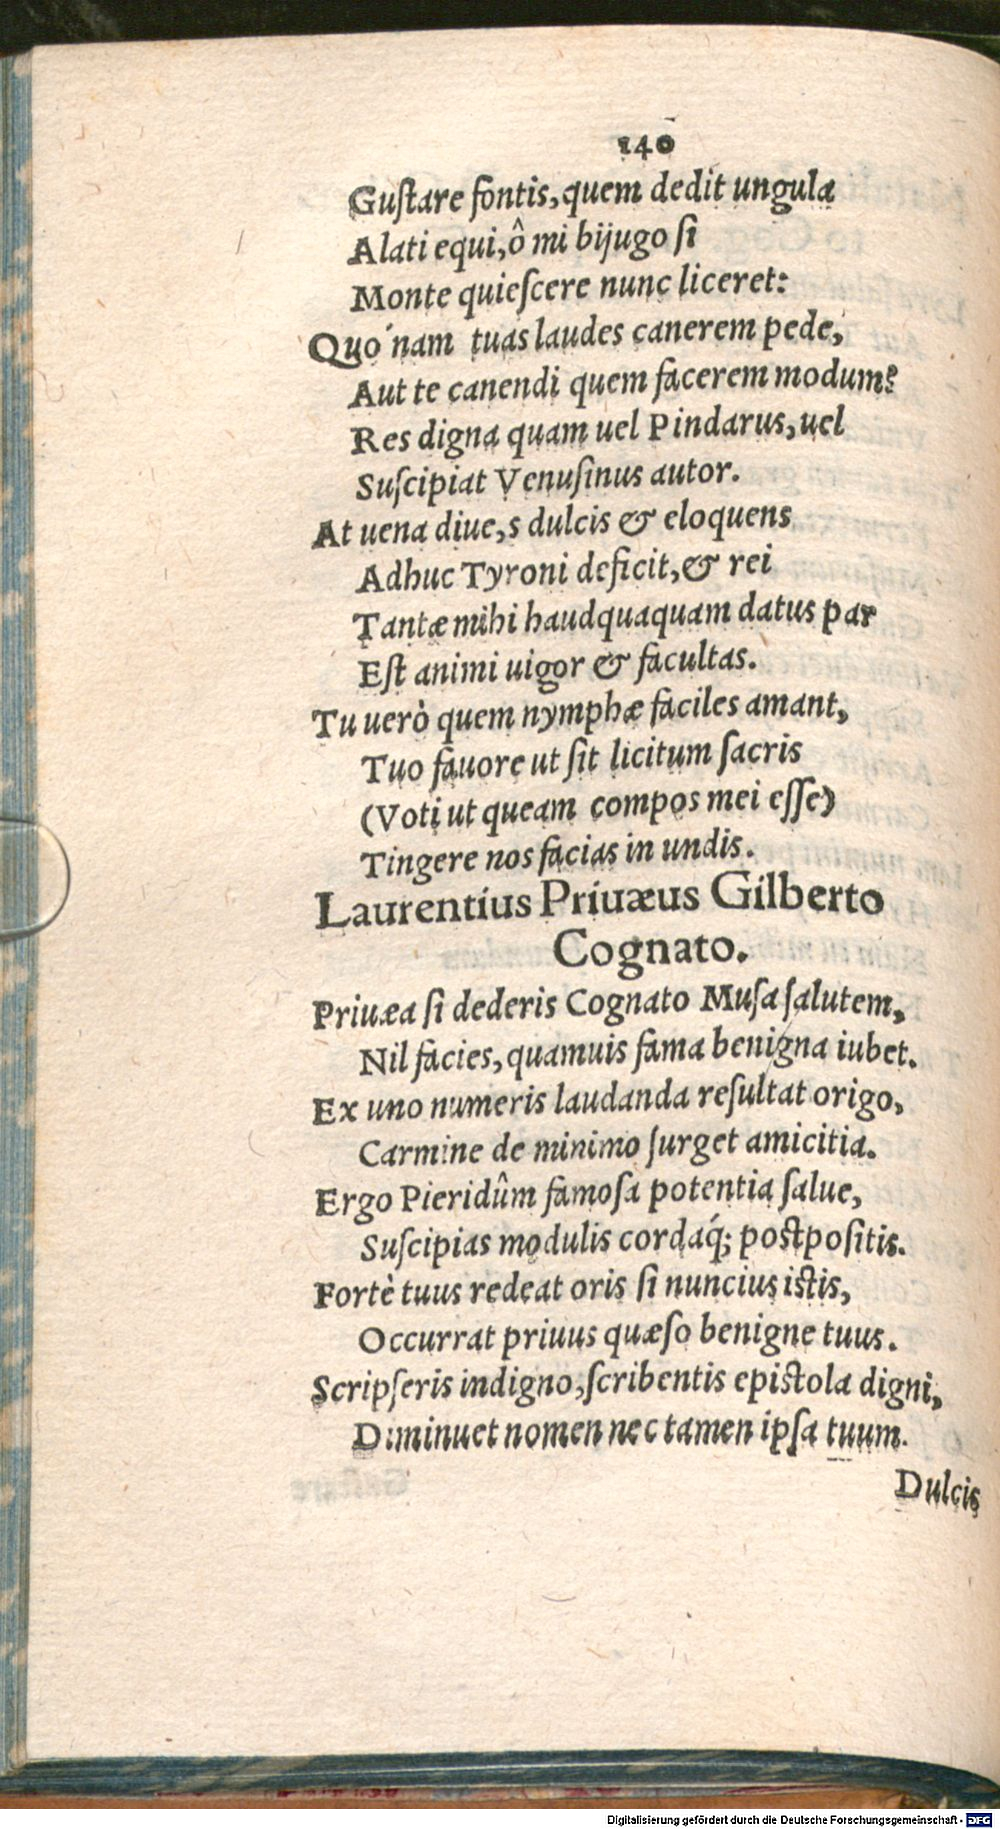 140
Guſtare fontis, quem dedit ungula
Alati equi, ô mi bijugo ſi
Monte quieſcere nunc liceret:
Quónam tuas laudes canerem pede,
Aut te canendi quem facerem modum?
Res digna quam uel Pindarus, uel
Suſcipiat Venuſinus autor.
At uena diue,s dulcis & eloquens
Adhuc Tyroni deficit, & rei
Tantæ mihi haudquaquam datus par
Eſt animi uigor & facultas.
Tu uerò quem nymphæ faciles amant,
Tuo fauore ut ſit licitum ſacris
(Voti ut queam compos mei eſſe)
Tingere nos facias in undis.
Laurentius Priuæus Gilberto
Cognato.
Priuæa ſi dederis Cognato Muſa ſalutem,
Nil facies, quamuis fama benigna iubet.
Ex uno numeris laudanda reſultat origo,
Carmine de minimo ſurget amicitia.
Ergo Pieridûm famoſa potentia ſalue,
Suſcipias modulis cordaq́; poſtpoſitis.
Fortè tuus redeat oris ſi nuncius iſtis,
Occurrat priuus quæſo benigne tuus.
Scripſeris indigno, ſcribentis epiſtola digni,
Diminuet nomen nec tamen ipſa tuum.
Dulcis
Digitalisierung gefördert durch die Deutsche Forschungsgemeinschaft - DFG